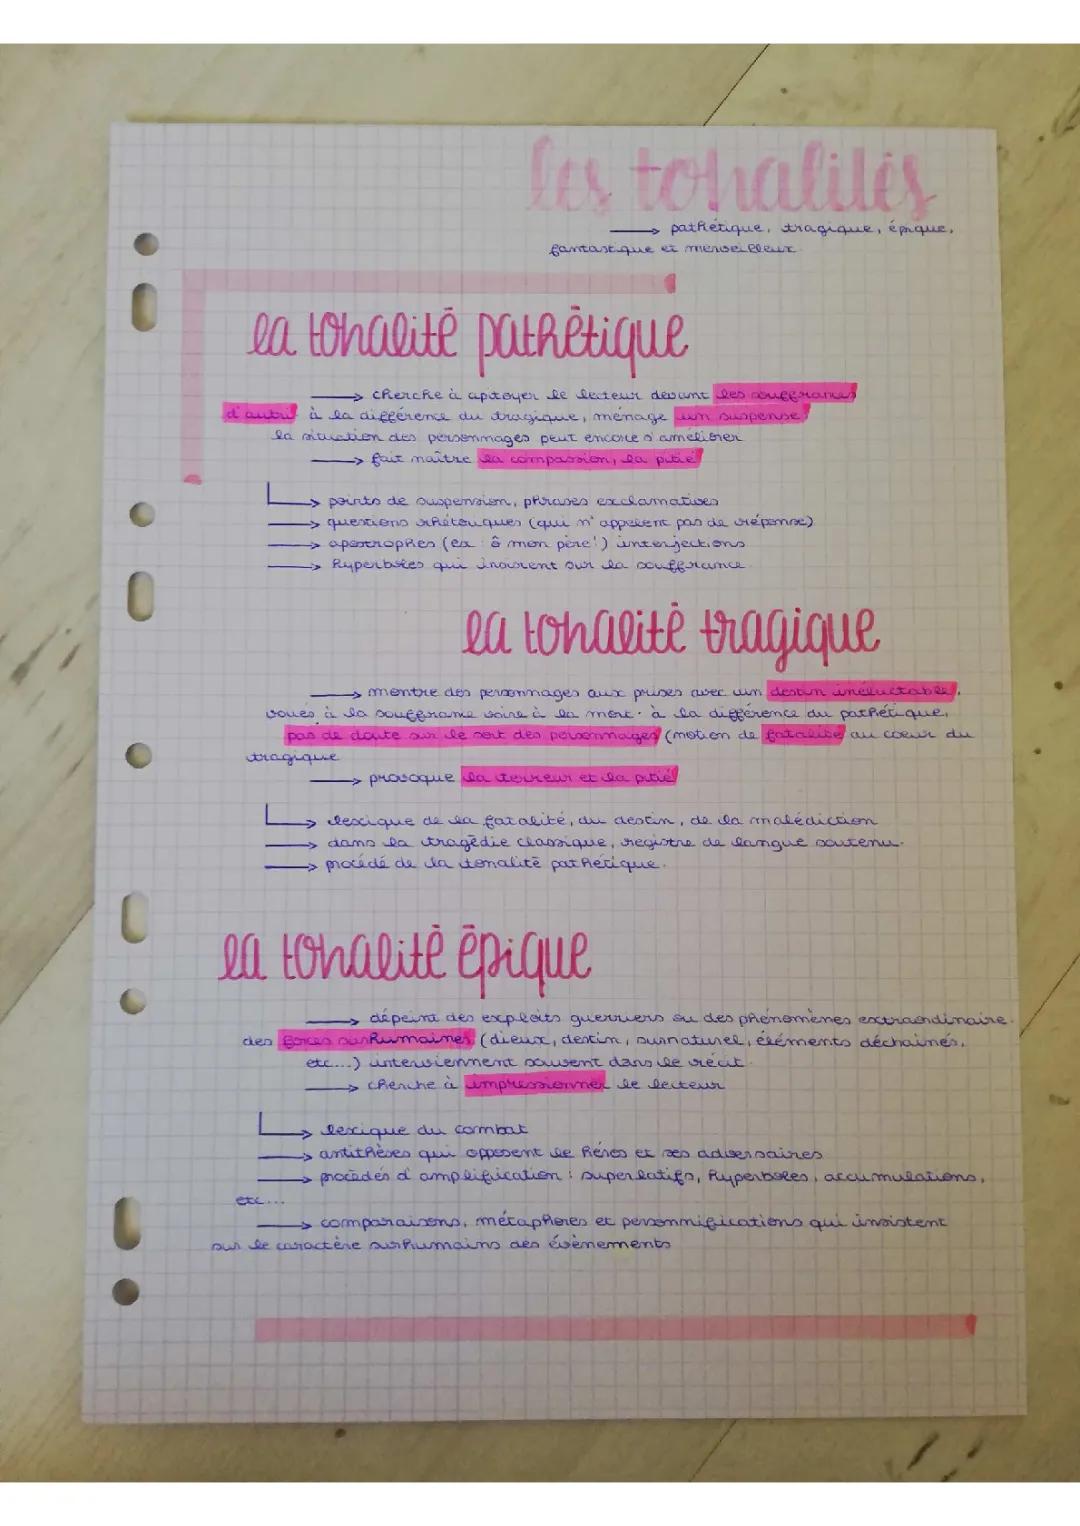 les tonalités
→ pathétique, tragique, épique,
fantastique et merveilleux
la tonalité pathétique
→ cherche à apitoyer le lecteur devant les souffrances
d'autrui à la différence du tragique, ménage un suspense
la situation des personnages peut encore s'améliorer
→ fait naître la compassion, la pitié
→ points de suspension, phrases exclamatives
→ questions rhétoriques (qui n'appelent pas de réponse)
→ apostrophes (ex : ô mon père!) interjections
→ hyperboles qui insistent sur la souffrance
la tonalité tragique
→ montre des personnages aux prises avec un destin inéluctable,
voués à la souffrance voire à la mort. à la différence du pathétique,
pas de doute sur le sort des personnages (notion de fatalité au coeur du
tragique
→ provoque la terreur et la pitié
→ lexique de la fatalité, du destin, de la malédiction
→ dans la tragédie classique, registre de langue soutenu.
→ procédé de la tonalité pathétique.
la tonalité épique
→ dépeint des exploits guerriers ou des phénomènes extraordinaire.
des forces surhumaines (dieux, destin, surnaturel, éléments déchainés,
etc...) interviennent souvent dans le récit.
→ cherche à impressionner le lecteur
→ lexique du combat
→ antithèses qui opposent le héros et ses adversaires
→ procédés d'amplification : superlatifs, hyperboles, accumulations,
etc...
→ comparaisons, métaphores et personnifications qui insistent
sur le caractère surhumains des évènements